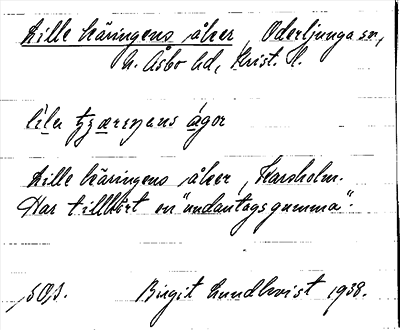 Lille käringens åker, Oderljunga sn,
N. Åsbo hd, Krist. l.
lilu tzærsŋans ágor
Lille käringens åker, Karsholm.
Har tillhört en "undantagsgumma".
Birgit Lundkvist 1938.